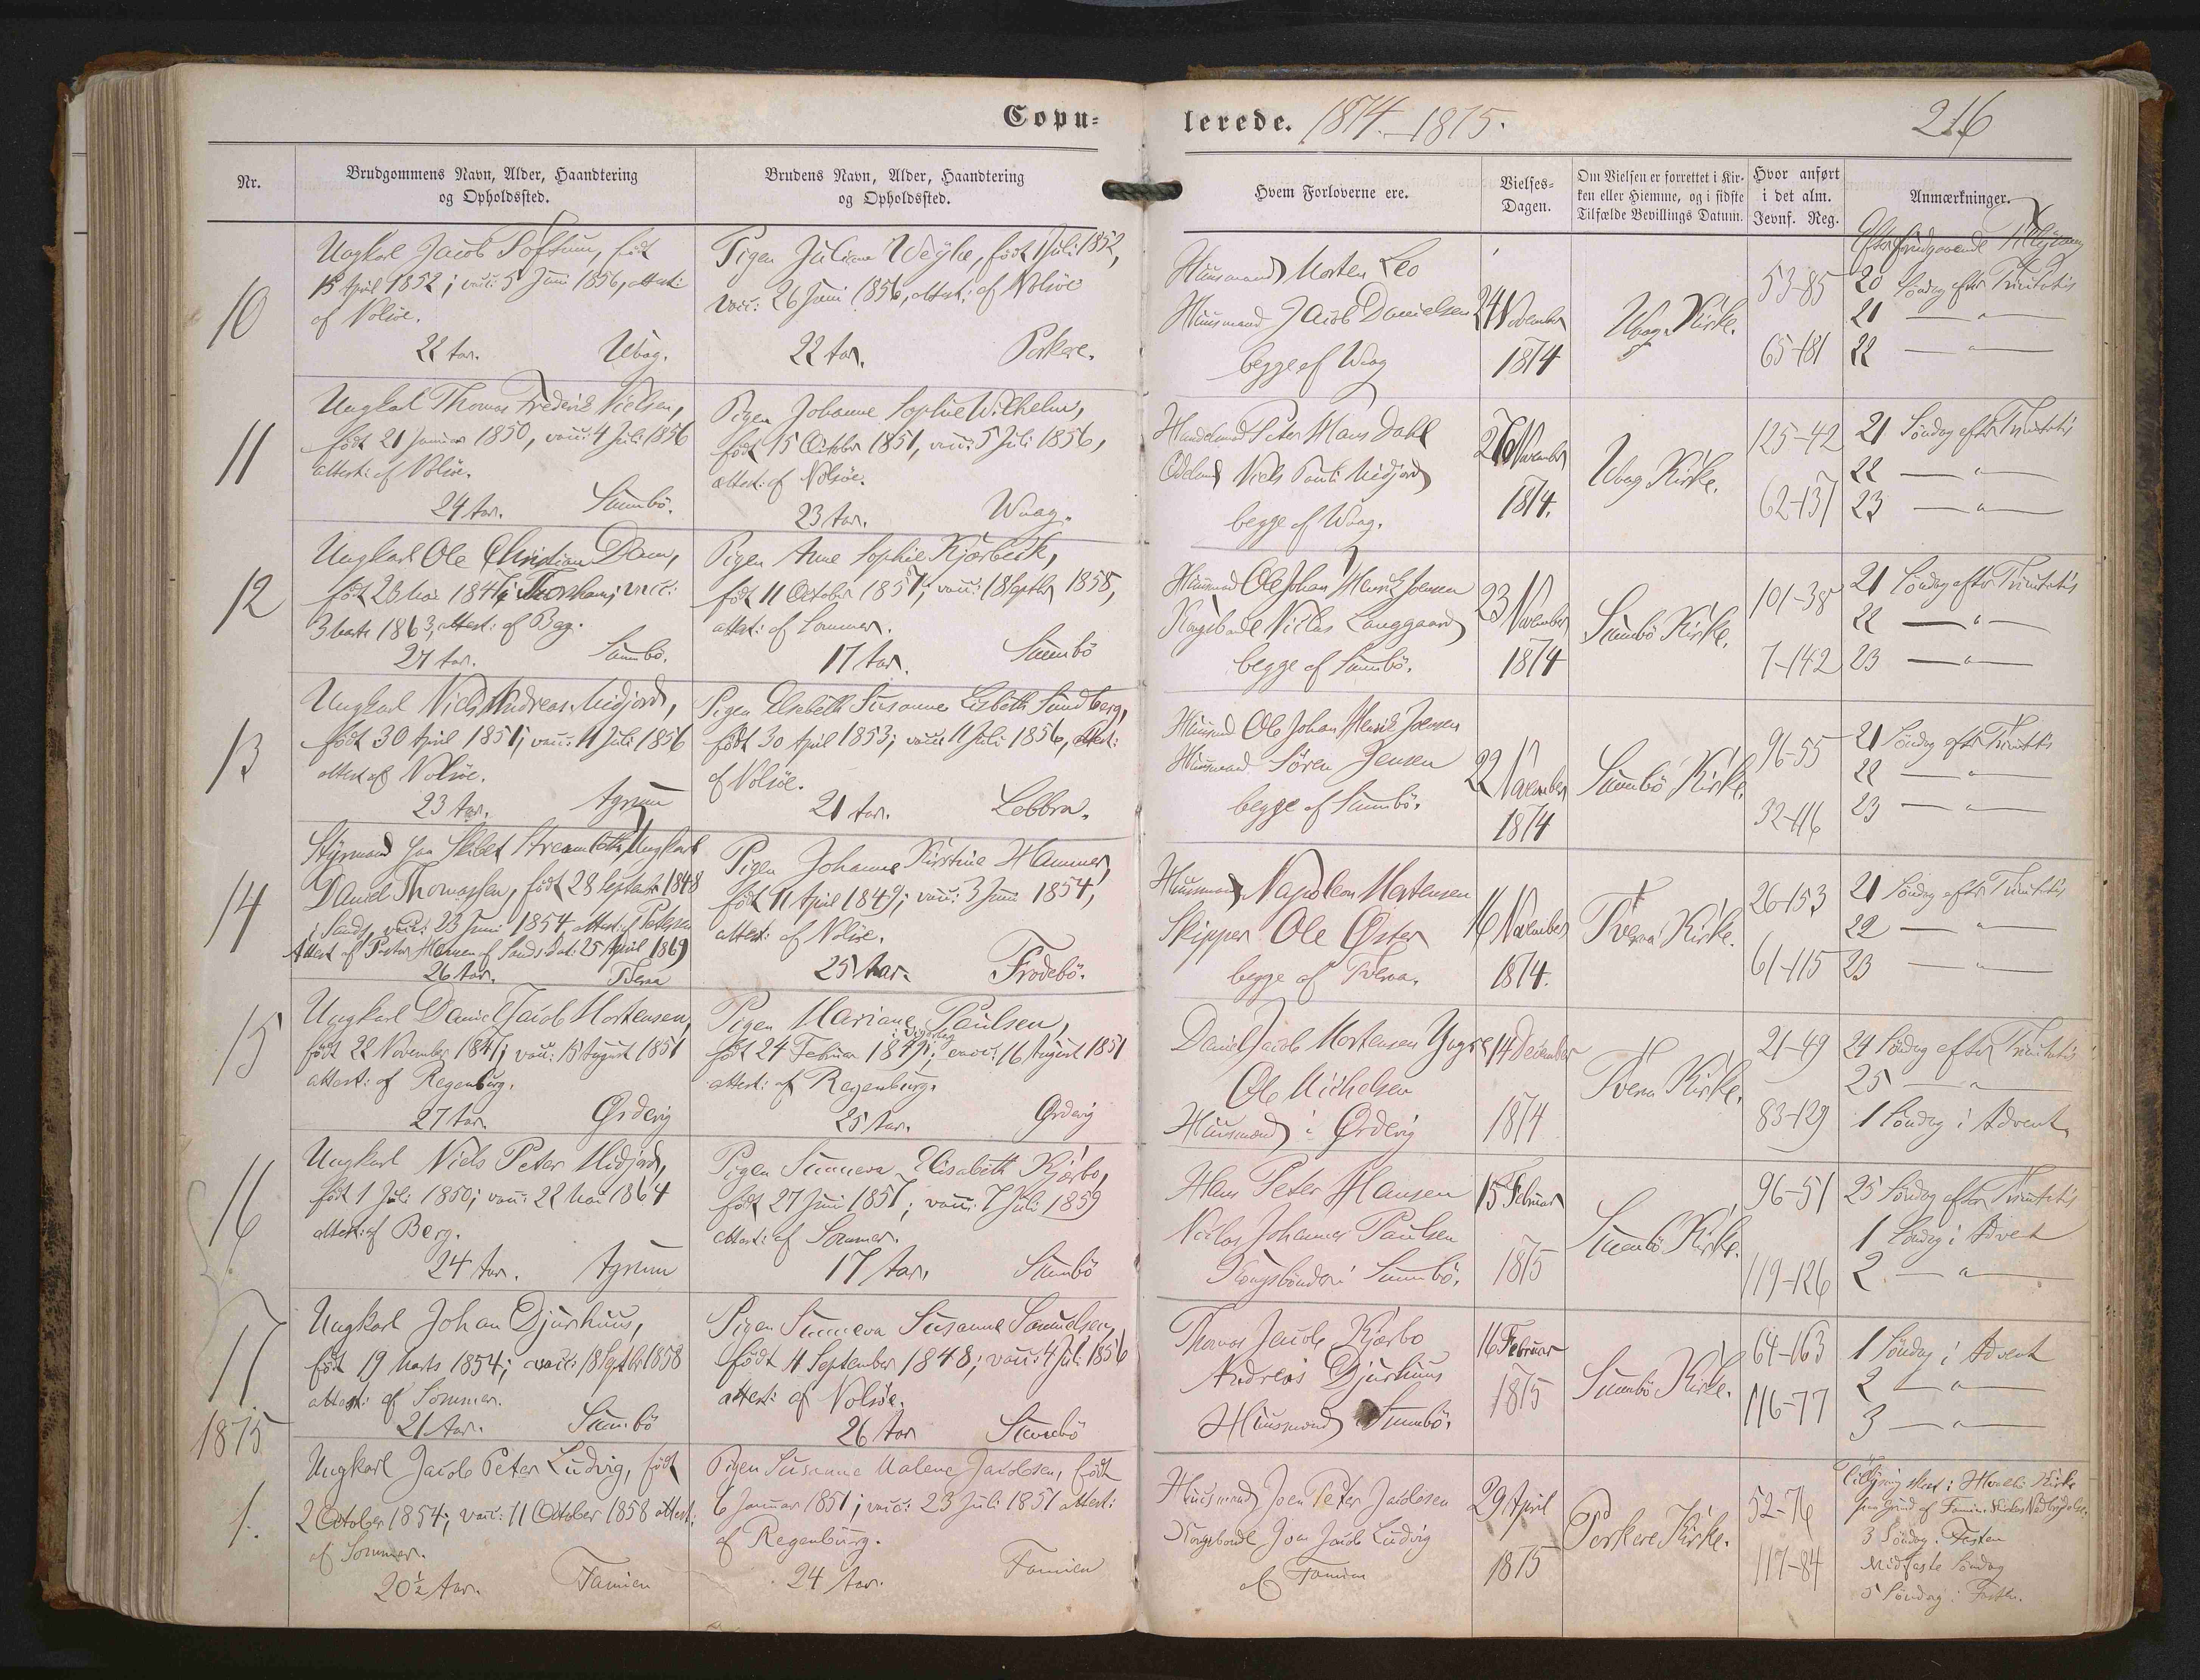 Copu=
lerede. 1874.-1875.
216
Nr.
Brudgommens Navn, Alder, Haandtering
og Opholdssted.
Brudens Navn, Alder, Haandtering
og Opholdssted.
Hvem Forloverne ere.
Vielses=
Dagen.
Om Vielsen er forrettet i Kir-
ken eller Hiemme, og i sidste
Tilfælde Bevillings Datum.
Hvor anført
i det alm.
Jevnf. Reg.
Anmærkninger.
10
Ungkarl Jacob født
15 April 1852; vacc: 5 Juni 1856, attest:
af Nolsöe.
22 Aar. Vaag.
Pigen Juliane Weyhe, født Juli 1852,
vacc: 26 Juni 1856, attest: af Nolsöe
22 Aar. Porkere.
Huusmand Morten Leo
Huusmand Jacob Danielsen
begge af Waag
24 November
1874
Waag Kirke.
53-85
65-181
20 Søndag efter Trinitatis
21 — " —
22 — " —
11
Ungkarl Thomas Frederik Nielsen,
født 21 Januar 1850, vacc: 4 Juli 1856
attest: af Nolsöe.
24 Aar. Sumbö.
Pigen Johanne Sophie Wilhelm,
født 15 October 1851, vacc: 5 Juli 1856,
attest: af Nolsöe.
23 Aar. Waag.
Handelsmand Peter Hans Dahl
Niels Pauli Midjord
begge af Waag.
26 November
1874.
Waag Kirke.
125-42
62-137
21 Søndag efter Trinitatis
22 — " —
23 — " —
12
Ungkarl Ole Christian Dam,
født 23 Mai 1847 i Thorshavn; vacc:
3 Marts 1863, attest: af Berg.
27 Aar. Sumbö.
Pigen Anne Sophie Kjærbeck,
født 11 October 1857; vacc: 18 Septbr 1858,
attest: af Sommer.
17 Aar. Sumbö
Huusmand Ole Johan Henrik Joensen
Kongsbonde Niclas Langgaard
begge af Sumbö.
23 November
1874
Sumbö Kirke.
101-38
7-142
21 Søndag efter Trinitatis
22 — " —
23 — " —
13
Ungkarl Niels Andreas Midjord,
født 30 April 1851; vacc: 11 Juli 1856
attest af Nolsöe.
23 Aar. Agrum
Pigen Elsebeth Susanne Lisbeth Sundberg,
født 30 April 1853; vacc: 11 Juli 1856, attest:
af Nolsöe.
21 Aar. Lobbra.
Huusmand Ole Johan Henrik Joensen
Huusmand Søren Jensen
begge af Sumbö.
22 November
1874
Sumbö Kirke.
96-55
32-116
21 Søndag efter Trinitatis
22 — " —
23 — " —
14
Styrmand paa Skibet Ungkarl
Daniel Thomassen, født 28 September 1848
i Sand, vacc: 23 Juni 1854, attest: af Petersen
Attest af Pastor af Sand dat: 25 April 1869
26 Aar. Tveraa
Pigen Johanne Kirstine Hammer,
født 11 April 1849; vacc: 3 Juni 1854,
attest: af Nolsöe.
25 Aar. Frodebö.
Huusmand Napoleon Mortensen
Skipper Ole Øster
begge af Tveraa.
16 November
1874.
Tveraa Kirke.
26-153
61-115
21 Søndag efter Trinitatis
22 — " —
23 — " —
15
Ungkarl Daniel Jacob Mortensen,
født 22 November 1847; vacc: 15 August 1851
attest: af Regenburg.
27 Aar. Ørdevig
Pigen Mariane Paulsen,
født 24 Februar 1849; vacc: 16 August 1851
attest: af Regenburg.
25 Aar. Ørdevig
Daniel Jacob Mortensen Yngre
Ole Michelsen
Huusmænd i Ørdevig
14 December
1874
Tveraa Kirke.
21-49
83-129
24 Søndag efter Trinitatis
25 — " —
1 Søndag i Advent
16
Ungkarl Niels Peter Midjord,
født 1 Juli 1850; vacc: 22 Mai 1864
attest: af Berg.
24 Aar. Agrum
Pigen Sunneva Elisabeth Kjærbo,
født 27 Juni 1857; vacc: 7 Juli 1859
attest: af Sommer.
17 Aar. Sumbö
Hans Peter Hansen
Niclas Johannes Paulsen
Kongsbönder i Sumbö.
15 Februar
1875
Sumbö Kirke.
96-51
119-126
25 Søndag efter Trinitatis
1 Søndag i Advent
2 — " —
17
Ungkarl Johan Djurhuus,
født 19 Marts 1854; vacc: 18 Septbr 1858
attest: af Sommer.
21 Aar. Sumbö
Pigen Sunneva Susanne Samuelsen,
født 4 September 1848; vacc: 4 Juli 1856
attest: af Nolsöe.
26 Aar Sumbö
Thomas Jacob Kjærbo
Andreas Djurhuus
Huusmænd Sumbö.
16 Februar
1875
Sumbö Kirke.
64-163
116-77
1 Søndag i Advent
2 — " —
3 — " —
1875
1.
Ungkarl Jacob Peter Ludvig, født
2 October 1854; vacc: 11 October 1858 attest:
af Sommer.
20½ Aar. Famien
Pigen Susanne Malene Jacobsen, født
6 Januar 1851; vacc: 23 Juli 1851 attest:
af Regenburg.
24 Aar. Famien
Huusmand Joen Peter Jacobsen
Kongsbonde Joen Jacob Ludvig
af Famien
29 April
1875
Porkere Kirke.
52-76
117-84
Tillysning skeet i Hvalbö Kirke
paa Grund af Famien Kirkes Nedbrydelse.
3 Søndag i Fasten
Midfaste Søndag
5 Søndag i Fasten.